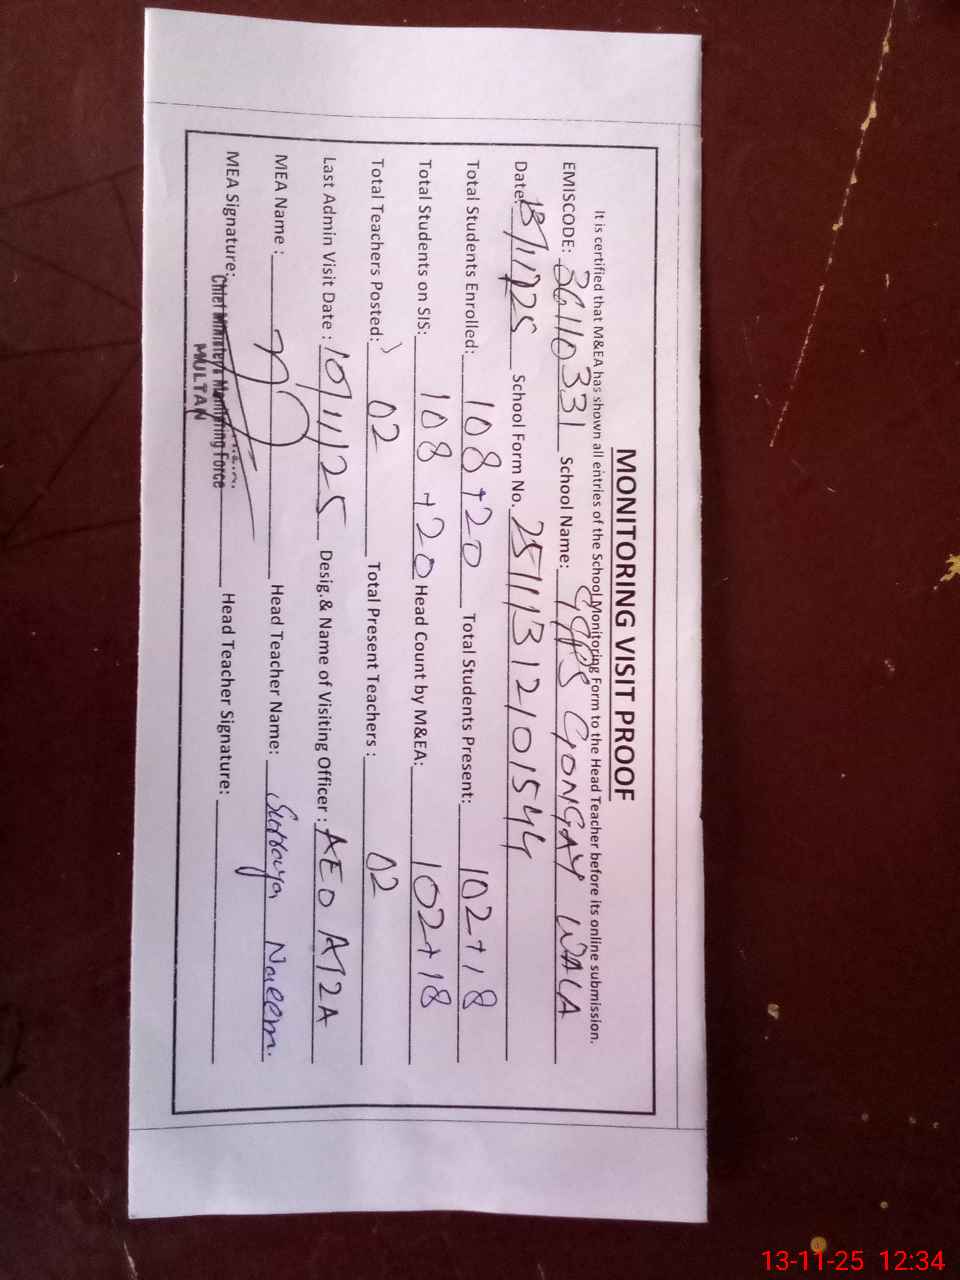 MONITORING VISIT PROOF
It is certified that M&EA has shown all entries of the School Monitoring Form to the Head Teacher before its online submission.
EMISCODE: 36110331 School Name: GGPS GONGAY WALA
Date: 13/11/25 School Form No. 25111312101544
Total Students Enrolled: 108+20 Total Students Present: 102+18
Total Students on SIS: 108+20 Head Count by M&EA: 102+18
Total Teachers Posted: 02 Total Present Teachers : 02
Last Admin Visit Date : 10/11/25 Desig.& Name of Visiting Officer : AEO
MEA Name : Head Teacher Name: Naeem.
MEA Signature: Head Teacher Signature:
Chief Monitoring Force
MULTAN
13-11-25 12:34